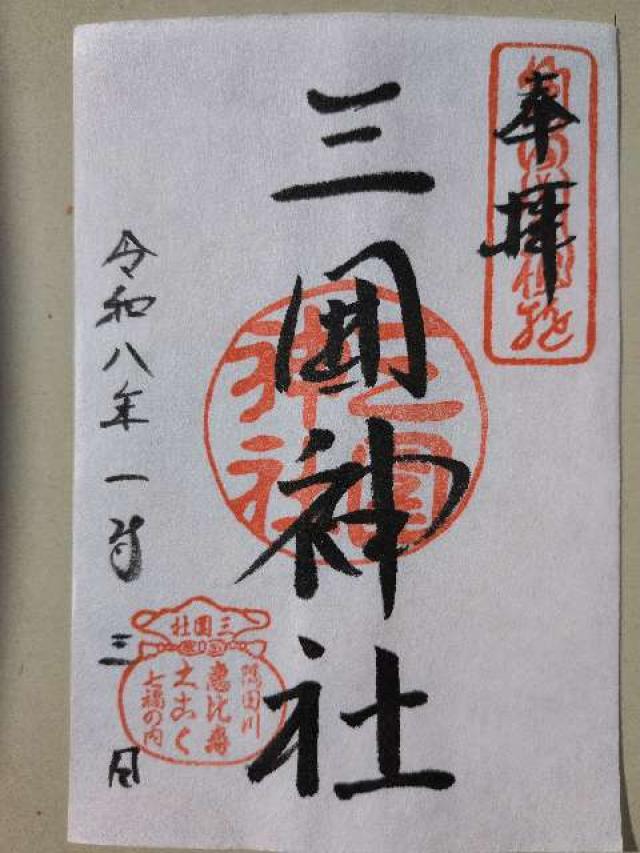 奉拝
三囲神社
三囲神社
令和八年一月三日
三囲社
隅田川
恵比寿
大こく
七福の内